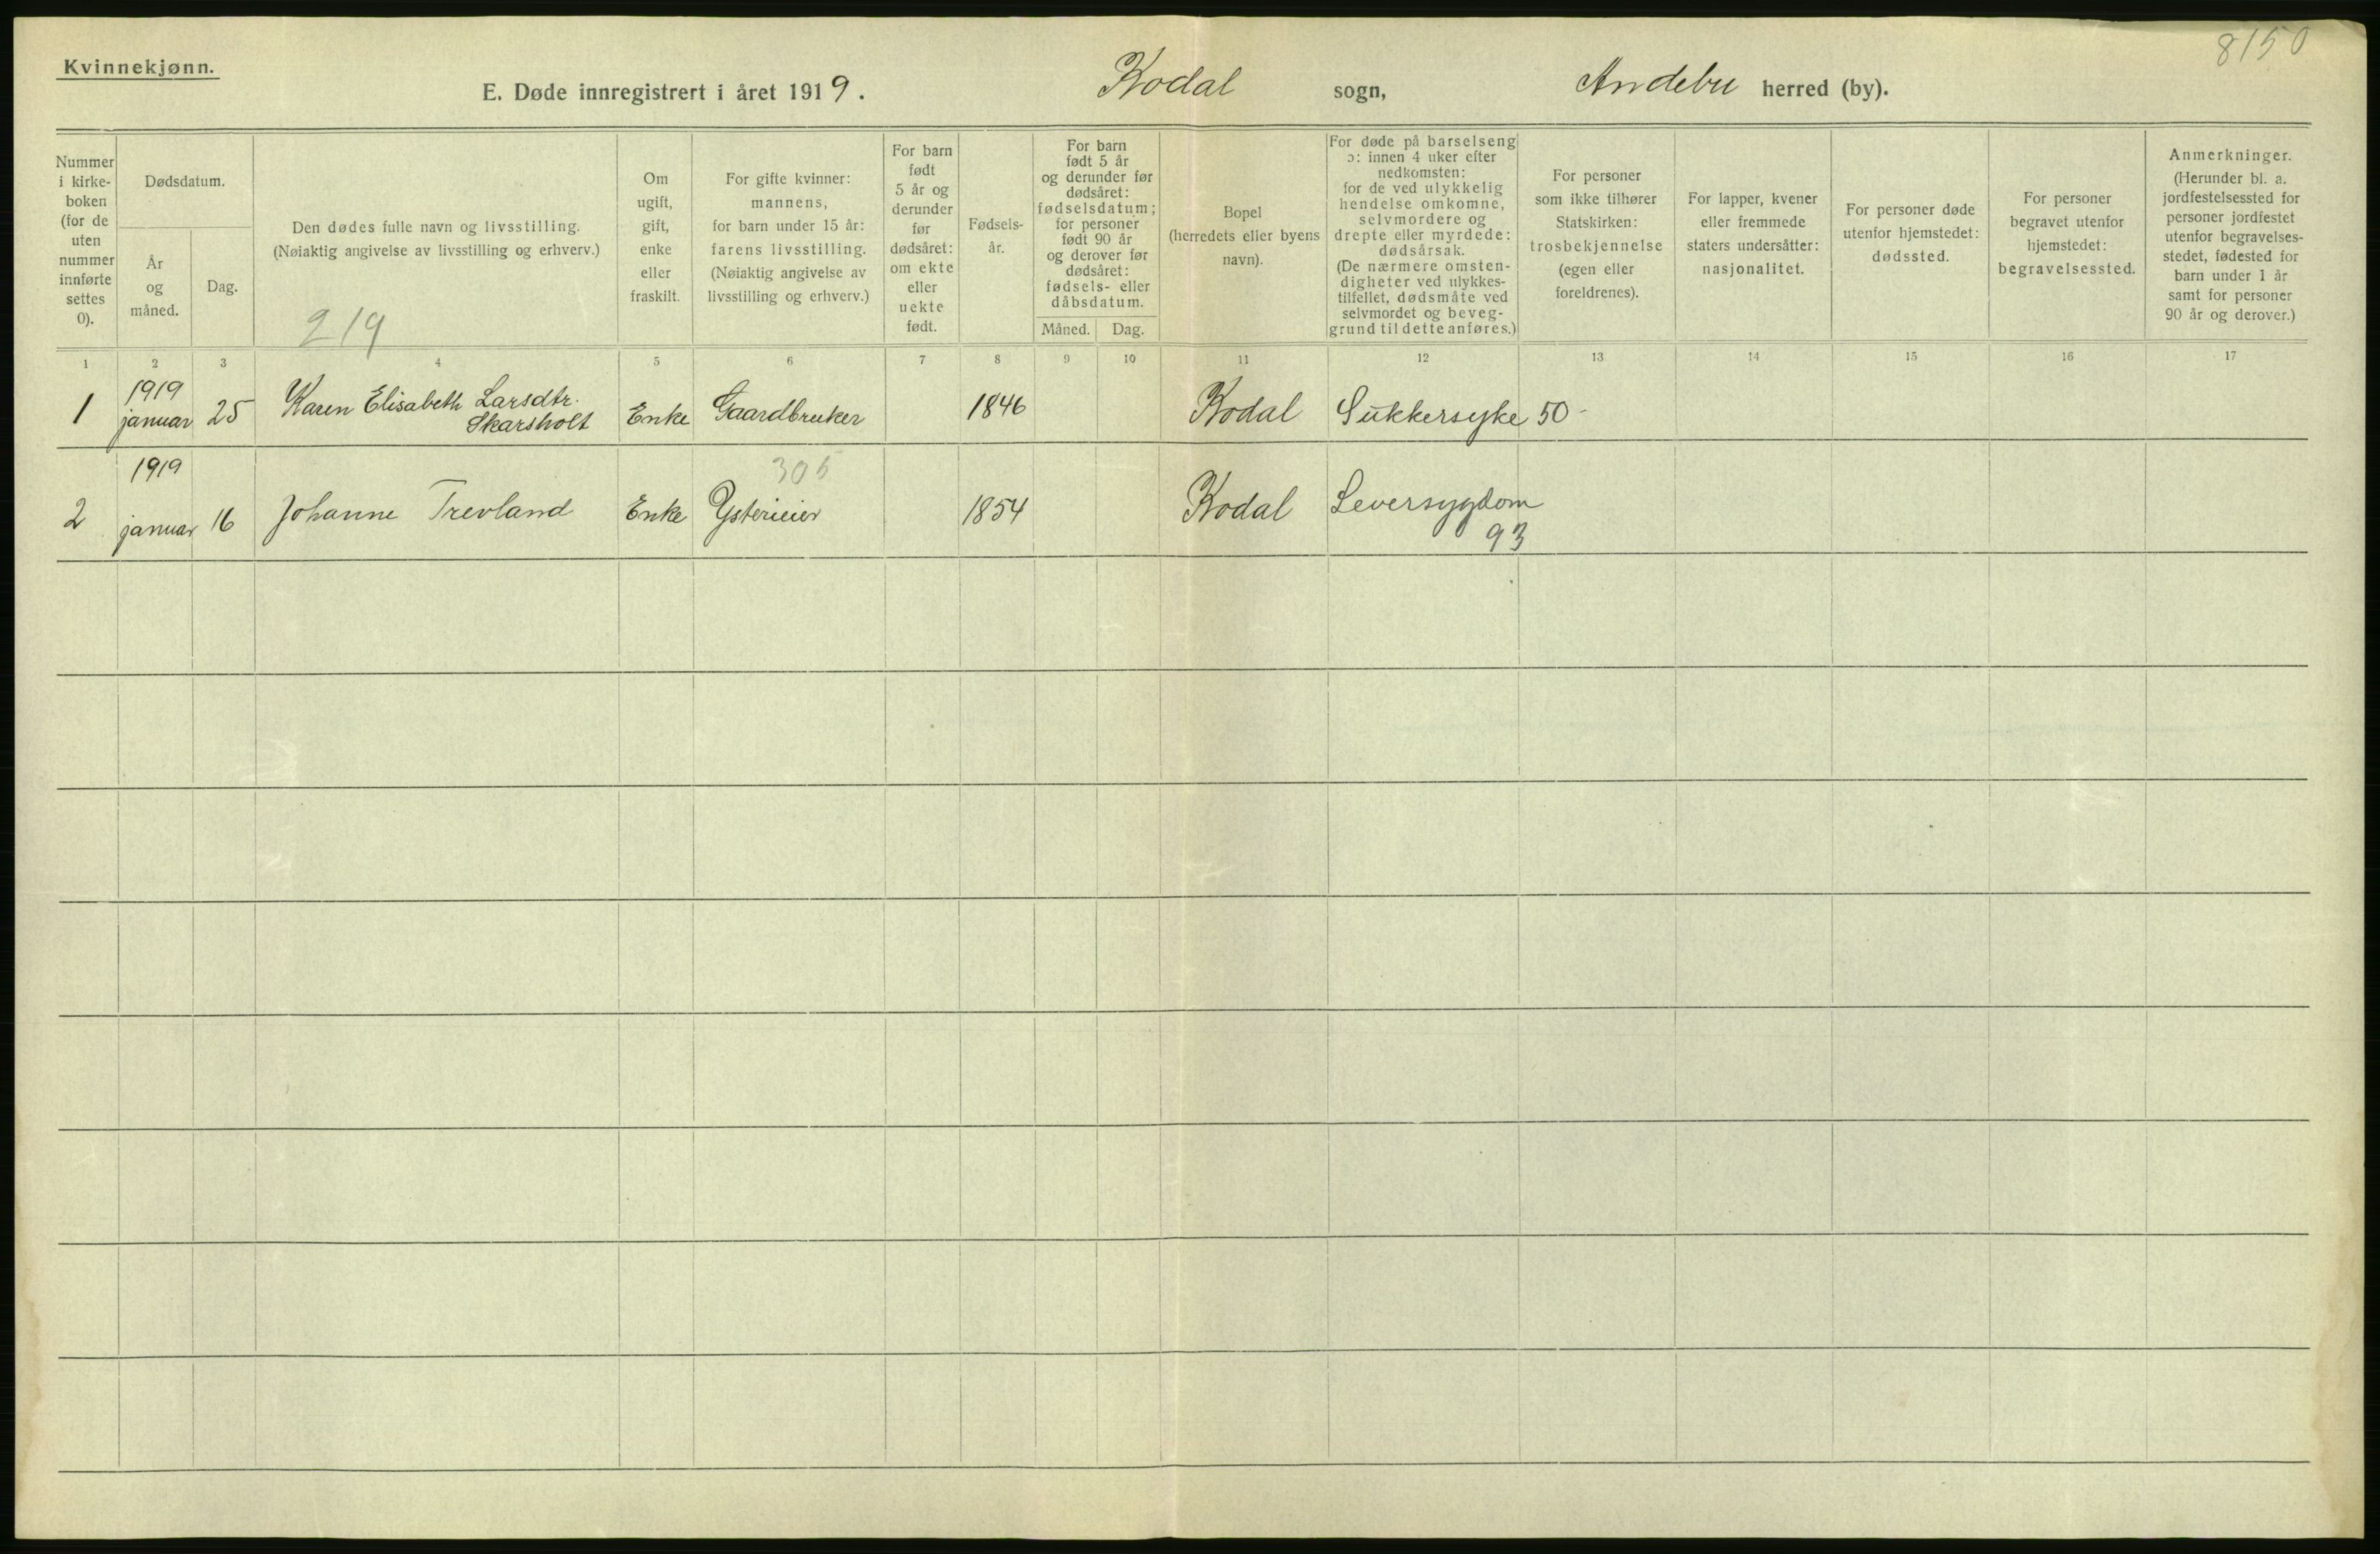 8150
Kvinnekjønn.
E. Døde innregistrert i året 1919. Kodal sogn, Andebu herred (by).
Nummer
i kirke-
boken
(for de
uten
nummer
innførte
settes
0).
Dødsdatum.
År
og
måned.
Dag.
Den dødes fulle navn og livsstilling.
(Nøiaktig angivelse av livsstilling og erhverv.)
219
Om
ugift,
gift,
enke
eller
fraskilt.
For gifte kvinner:
mannens,
for barn under 15 år:
farens livsstilling.
(Nøiaktig angivelse av
livsstilling og erhverv.)
For barn
født
5 år og
derunder
før
dødsåret:
om ekte
eller
uekte
født.
Fødsels-
år.
For barn
født 5 år
og derunder før
dødsåret:
fødselsdatum;
for personer
født 90 år
og derover før
dødsåret:
fødsels- eller
dåbsdatum.
Måned. Dag.
Bopel
(herredets eller byens
navn).
For døde på barselseng
ɔ: innen 4 uker efter
nedkomsten:
for de ved ulykkelig
hendelse omkomne,
selvmordere og
drepte eller myrdede:
dødsårsak.
(De nærmere omsten-
digheter ved ulykkes-
tilfellet, dødsmåte ved
selvmordet og beveg-
grund til dette anføres.)
For personer
som ikke tilhører
Statskirken:
trosbekjennelse
(egen eller
foreldrenes).
For lapper, kvener
eller fremmede
staters undersåtter:
nasjonalitet.
For personer døde
utenfor hjemstedet:
dødssted.
For personer
begravet utenfor
hjemstedet:
begravelsessted.
Anmerkninger.
(Herunder bl. a.
jordfestelsessted for
personer jordfestet
utenfor begravelses-
stedet, fødested for
barn under 1 år
samt for personer
90 år og derover.)
1 2 3 4 5 6 7 8 9 10 11 12 13 14 15 16 17
1919
1 januar 25 Karen Elisabeth Larsdtr. Enke Gaardbruker 1846 Kodal Sukkersyke 50-
Skarsholt
1919 305
2 januar 16 Johanne Trevland Enke Ysterieier 1854 Kodal Leversygdom
93